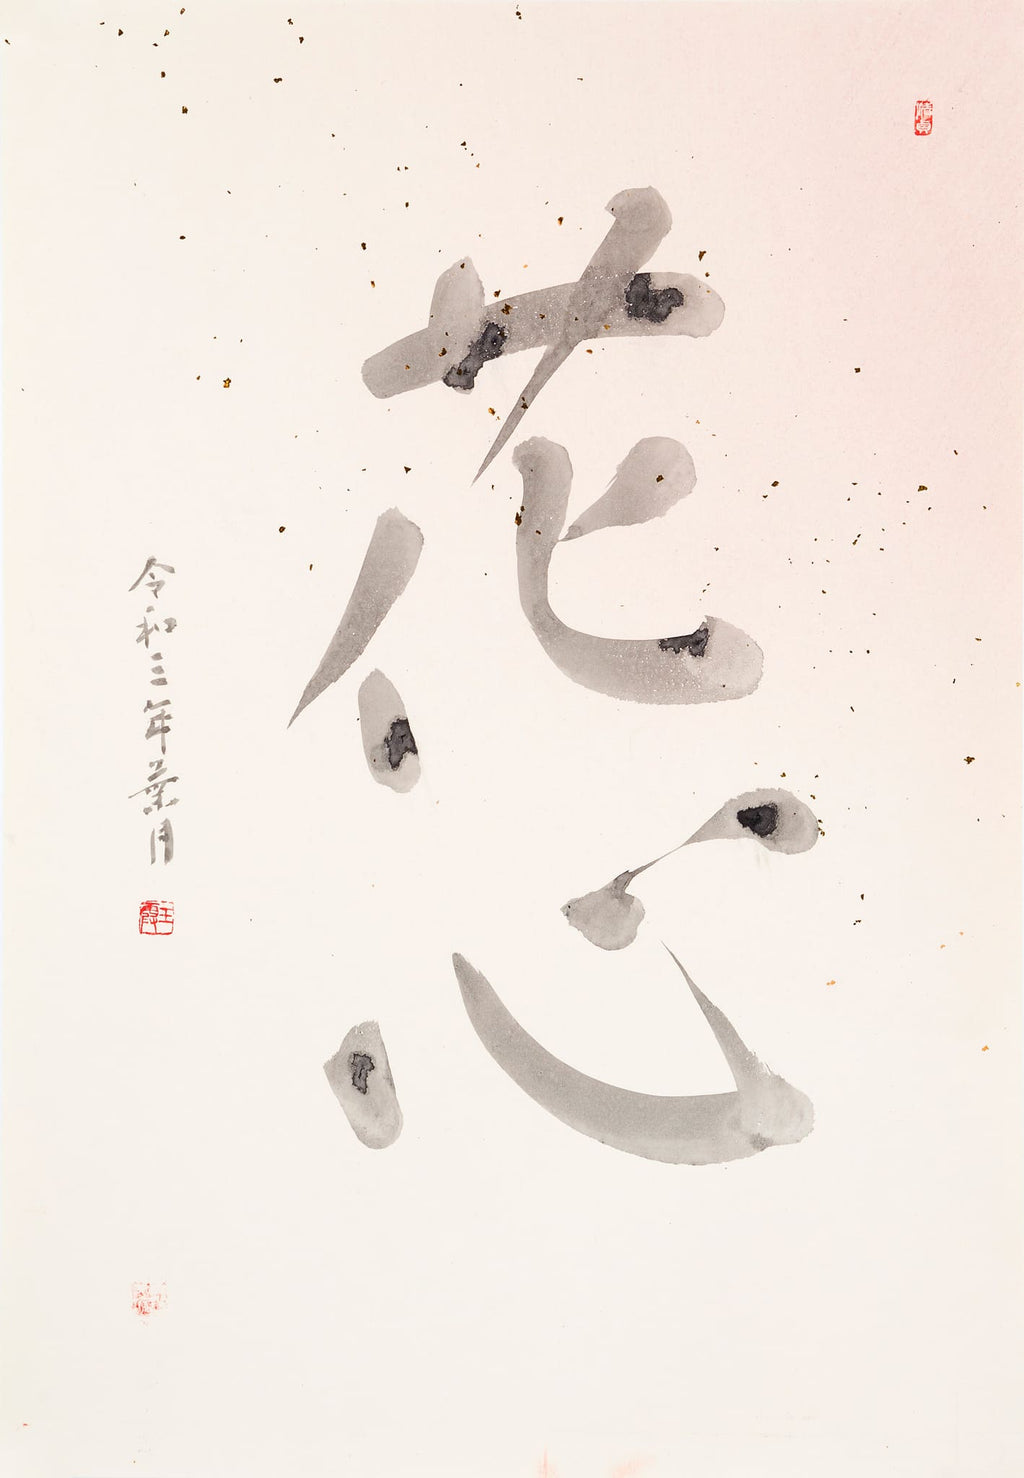 花心
令和三年葉月
王霞